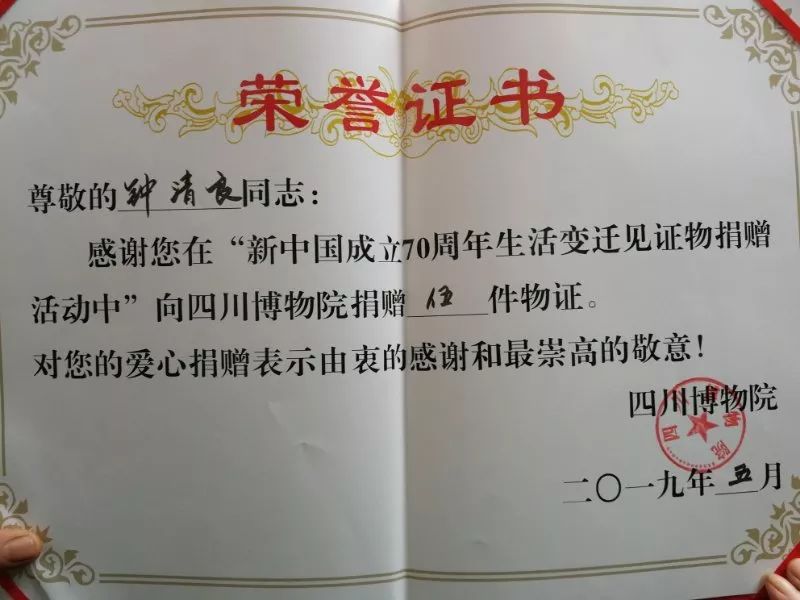 荣誉证书
尊敬的钟清良同志：
感谢您在“新中国成立70周年生活变迁见证物捐赠
活动中”向四川博物院捐赠伍件物证。
对您的爱心捐赠表示由衷的感谢和最崇高的敬意！
四川博物院
四川博物院
二〇一九年五月